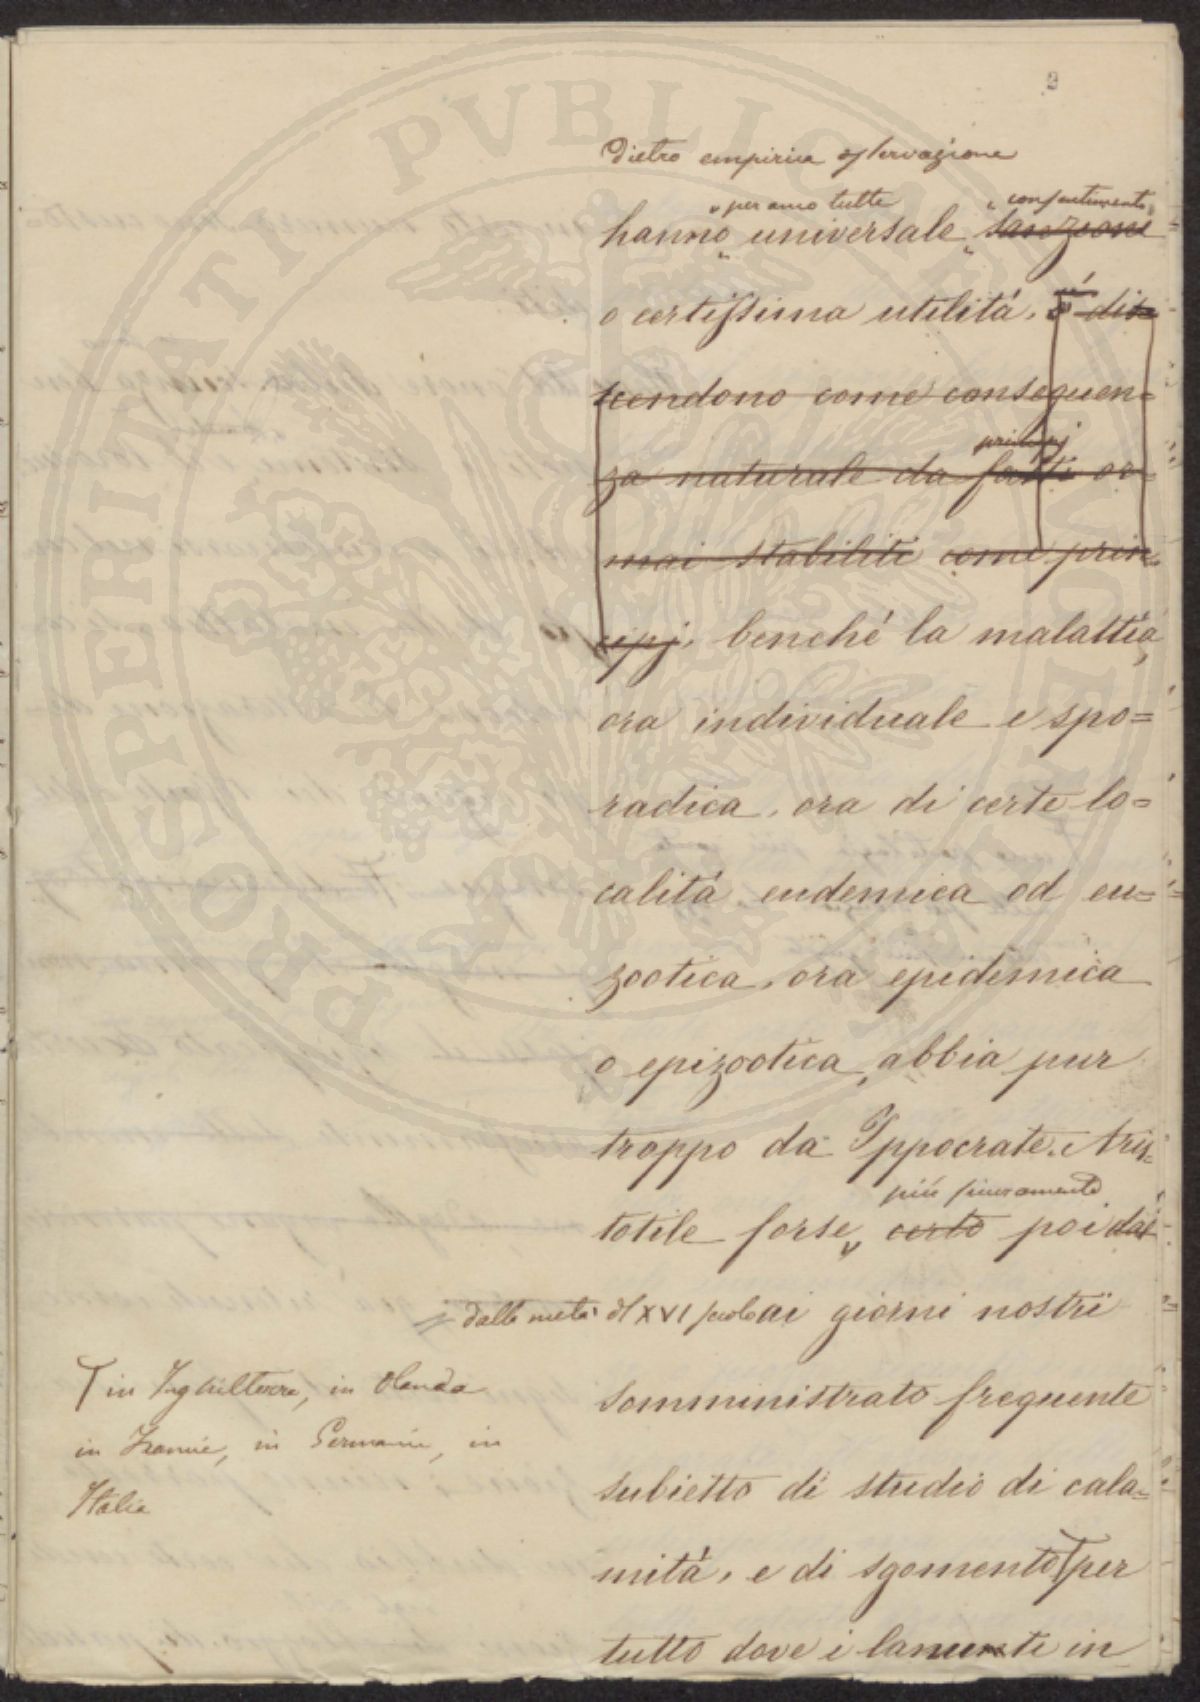 2
dietro empirica osservazione
speranno tutte consentimento
hanno universale sanzione
o certissima utilità. E dis
cendono come conseguen=
principj
za naturale da fatti or=
mai stabiliti come prin
cipj. benché la malattia
ora individuale e spo=
radica, ora di certe lo=
calità endemica od en=
zootica, ora epidemica
o epizootica, abbia pur
troppo da Ippocrate. Aris=
più sicuramente
totile forse, certo poi dai
dalla metà del XVI secolo ai giorni nostri
somministrato frequente
subietto di studio di cala=
mità, e di sgomento per
tutto dove i lanuti in
in Inghilterra, in Olanda
in Francia, in Germania, in
Italia
PROSPERITATI PVBLICAE